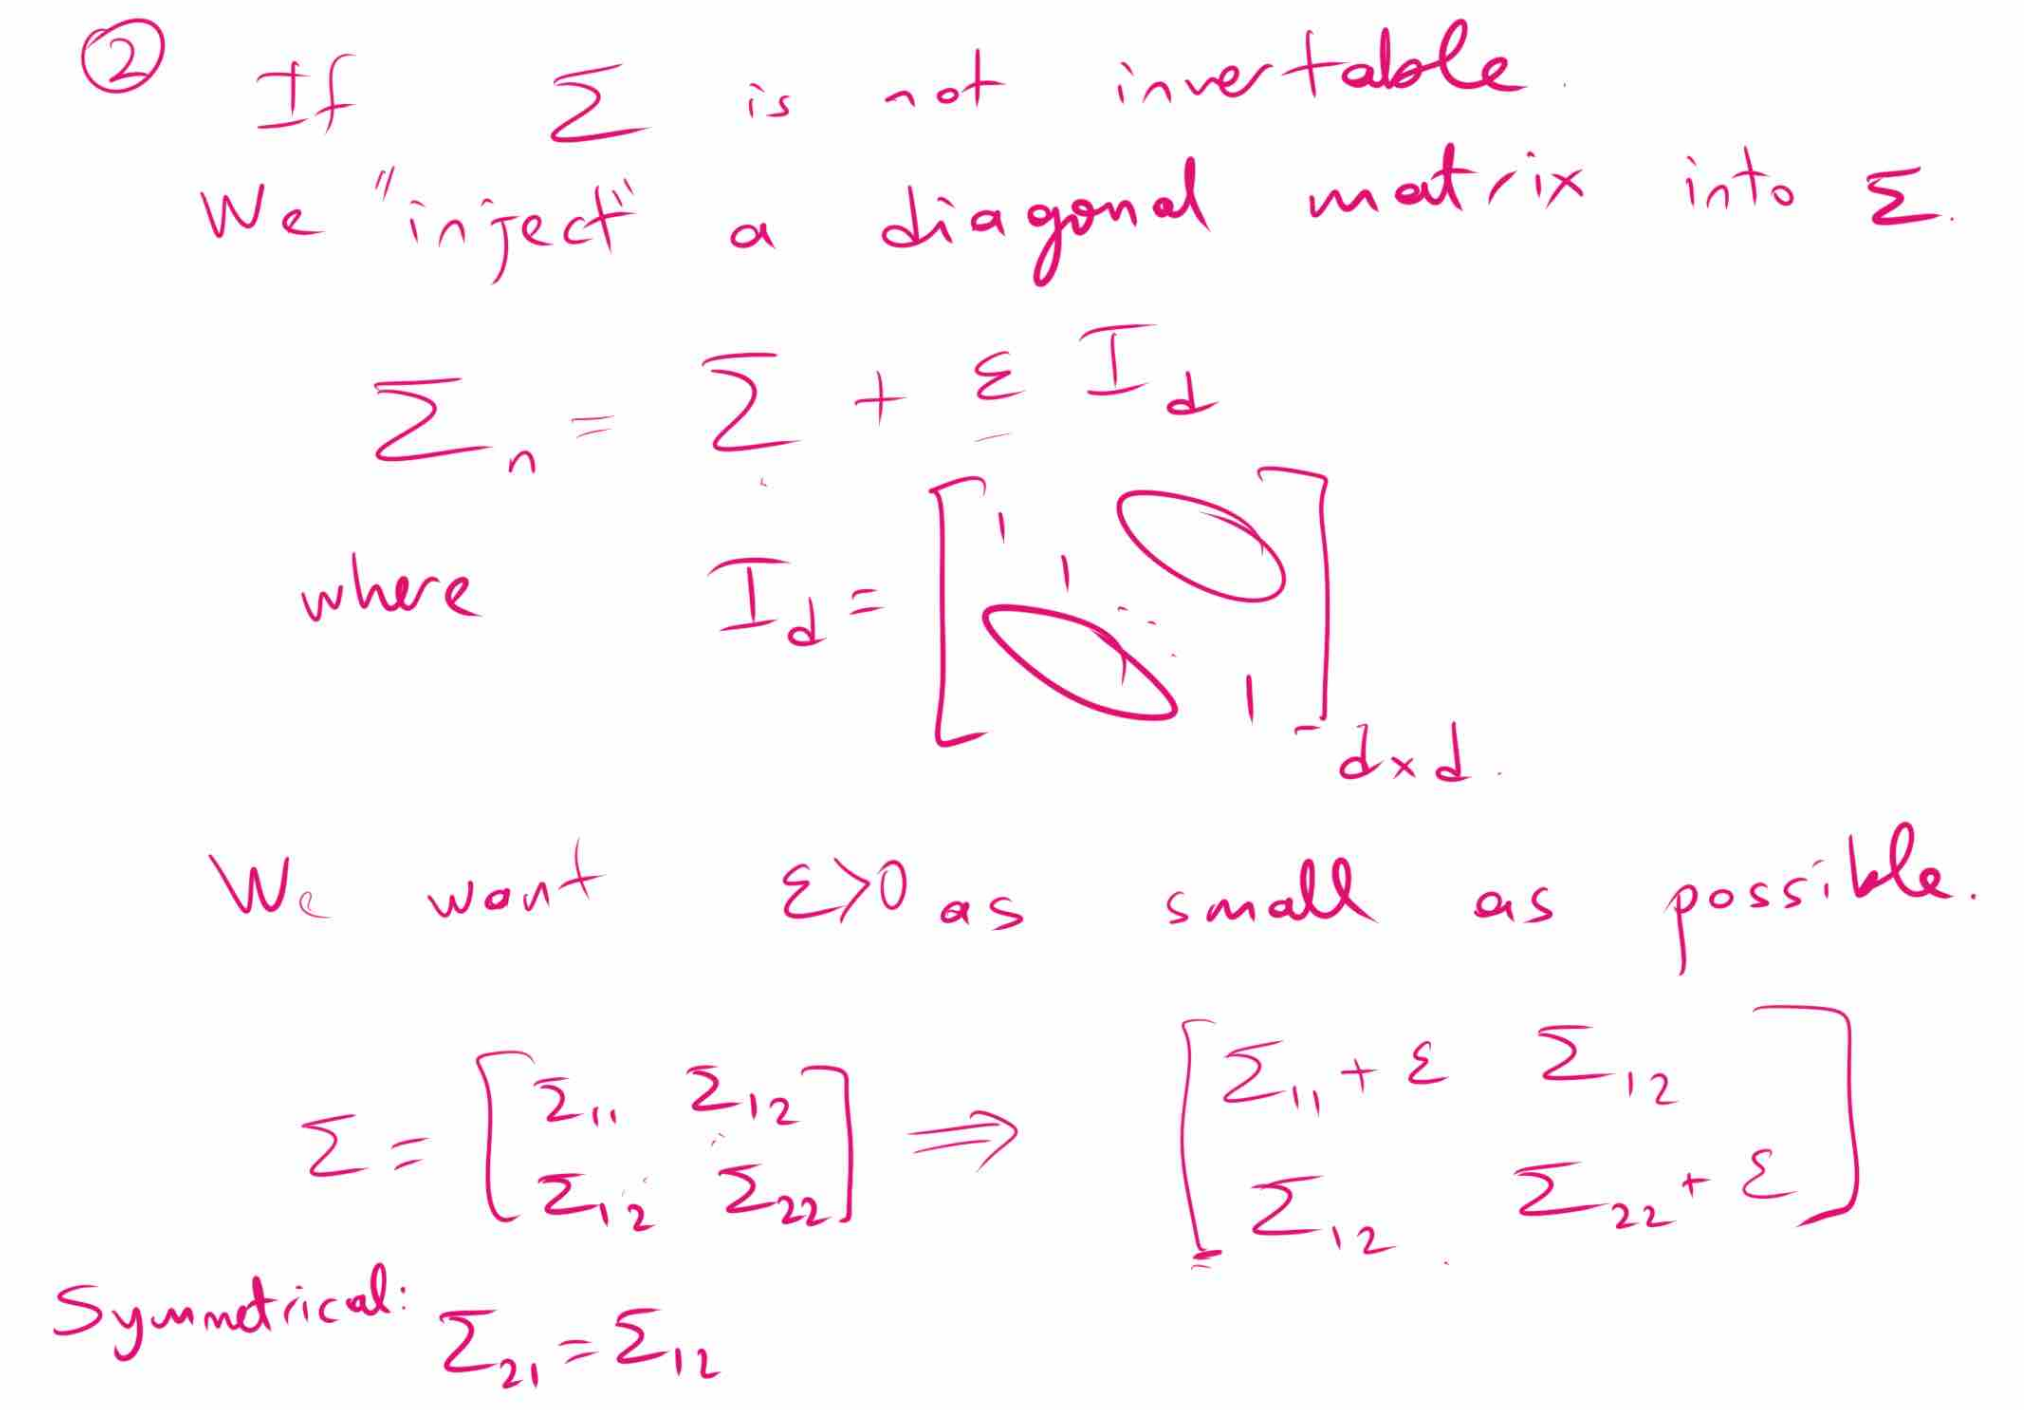 ② If Σ is not invertable.
We "inject" a diagonal matrix into Σ.
Σₙ = Σ + ε I_d
where I_d = [1 1 ⋱ 1]_{d×d}.
We want ε>0 as small as possible.
Σ = [Σ₁₁ Σ₁₂ ; Σ₁₂ Σ₂₂] ⟹ [Σ₁₁ + ε Σ₁₂ ; Σ₁₂ Σ₂₂ + ε]
Symmetrical: Σ₂₁ = Σ₁₂